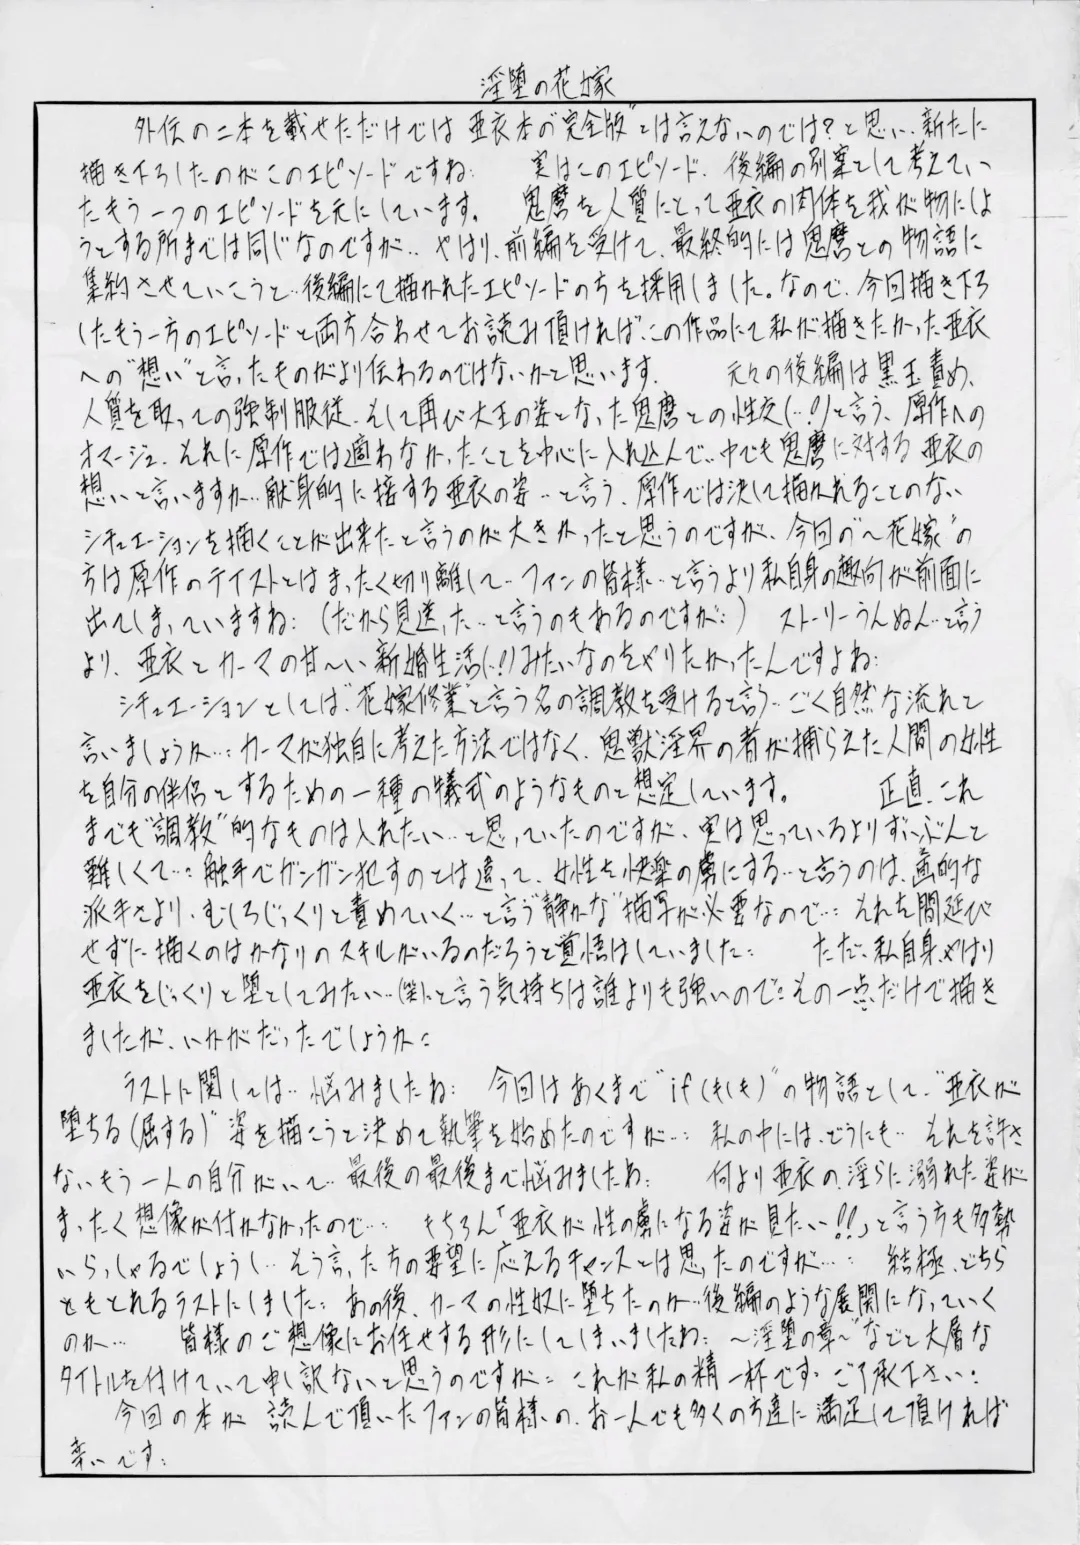 淫堕の花嫁
外伝の二本を載せただけでは亜衣本の"完全版"とは言えないのでは?と思い、新たに
描き下ろしたのがこのエピソードですね… 実はこのエピソード、後編の別案として考えてい
たもう一つのエピソードを元にしています。 鬼麿を人質にとって亜衣の肉体を我が物にしよ
うとする所までは同じなのですが‥やはり、前編を受けて、最終的には鬼麿との物語に
集約させていこうと‥後編にて描かれたエピソードのちを採用しました。なので、今回描き下ろ
したもう一方のエピソードと両方合わせてお読み頂ければ、この作品にて私が描きたかった亜衣
への"想い"と言ったものがより伝わるのではないかと思います。 元々の後編は黒玉責め、
人質を取っての強制服従、そして再び大王の姿となった鬼麿との性交(…!)と言う、原作への
オマージュ、それに原作では適わなかったことを中心に入れ込んで‥中でも鬼麿に対する亜衣の
想いと言いますか‥献身的に接する亜衣の姿‥と言う、原作では決して描かれることのない
シチュエーションを描くことが出来たと言うのが大きかったと思うのですが、今回の"〜花嫁"の
方は原作のテイストとはまったく切り離して‥ファンの皆様‥と言うより私自身の趣向が前面に
出てしまっていますね… (だから見送った‥と言うのもあるのですが…) ストーリーうんぬん‥と言う
より、亜衣とカーマの甘〜い新婚生活(…!)みたいなのをやりたかったんですよね…
シチュエーションとしては"花嫁修業"と言う名の調教を受けると言う‥ごく自然な流れと
言いましょうか…:カーマが独自に考えた方法ではなく、鬼獣淫界の者が捕らえた人間の女性
を自分の伴侶とするための一種の儀式のようなものと想定しています。 正直、これ
までも"調教"的なものは入れたい‥と思っていたのですが、実は思っているよりずいぶんと
難しくて…:触手でガンガン犯すのとは違って、女性を快楽の虜にする‥と言うのは、画的な
派手さより、むしろじっくりと責めていく‥と言う"静かな"描写が必要なので…:それを間延び
せずに描くのはかなりのスキルがいるのだろうと覚悟はしていました… ただ、私自身、やはり
亜衣をじっくりと堕としてみたい‥(笑)、と言う気持ちは誰よりも強いので…その一点だけで描き
ましたが、いかがだったでしょうか…
ラストに関しては‥悩みましたね… 今回はあくまで"if(もしも)"の物語として、"亜衣が
堕ちる(屈する)"姿を描こうと決めて執筆を始めたのですが…:私の中には、どうにも‥それを許さ
ないもう一人の自分がいて、最後の最後まで悩みましたね… 何より亜衣の、淫らに溺れた姿が
まったく想像が付かなかったので…: もちろん「亜衣が性の虜になる姿が見たい!!」と言う方も多勢
いらっしゃるでしょうし‥そう言った方の要望に応えるチャンスとは思ったのですが…: 結極、どちら
ともとれるラストにしました… あの後、カーマの性奴に堕ちたのか‥後編のような展開になっていく
のか… 皆様のご想像にお任せする形にしてしまいましたね… 〜淫堕の章〜"などと大層な
タイトルを付けていて申し訳ないと思うのですが… これが私の精一杯です‥ご了承下さい…
今回の本が読んで頂いたファンの皆様の、お一人でも多くの方達に満足して頂ければ
幸いです…